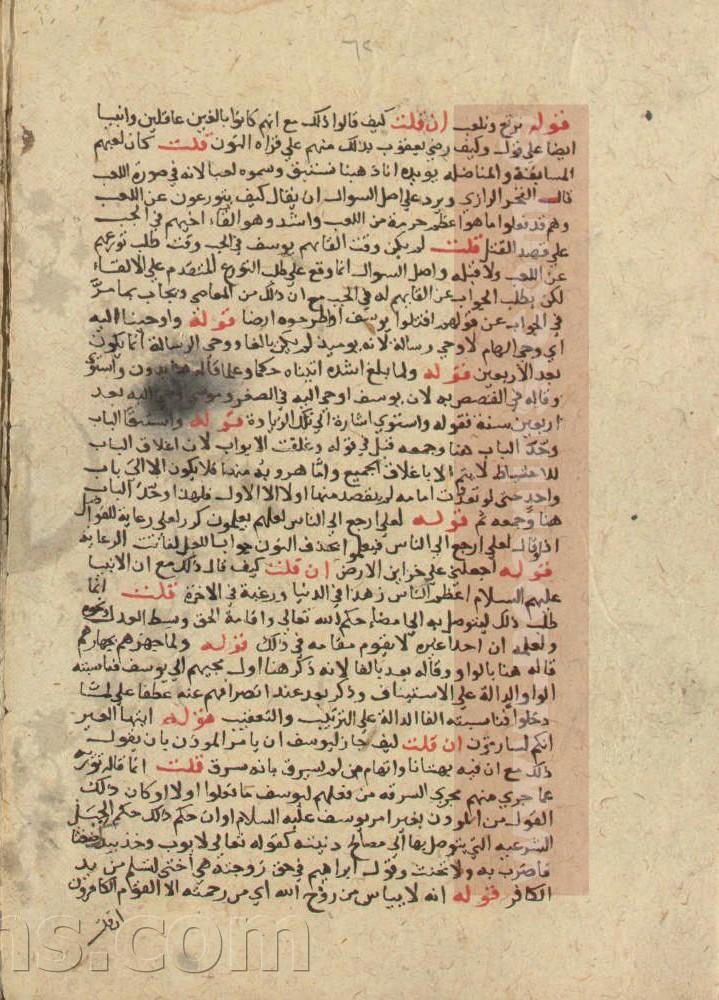 ٦٢
قوله نرتع ونلعب ان قلت كيف قالوا ذلك مع انهم كانوا بالغين عاقلين وانبيا
ايضا على قول وكيف رضي يعقوب بذلك منهم على قراة النون قلت كان لعبهم
المسابقة والمناضلة يويده انا ذهبنا نستبق وسموه لعبا لانه في صورة اللعب
قال الفخر الرازي ويرد على اصل السوال ان يقال كيف يتورعون عن اللعب
وهم قد فعلوا ما هو اعظم حرمة من اللعب واشد وهو القاء اخيهم في الجب
على قصد القتل قلت لم يكن وقت القائهم يوسف في الجب وقت طلب تورعهم
عن اللعب ولا قبله واصل السوال انما وقع على طلب التورع المتقدم على الالقاء
لكن يطلب الجواب عن القايهم له في الجب مع ان ذلك من المعاصي ويجاب بما مر
في الجواب عن قولهم اقتلوا يوسف او اطرحوه ارضا قوله واوحينا اليه
اي وحي الهام لا وحي رسالة لانه يوميذ لم يكن بالغا ووحي الرسالة انما يكون
بعد الاربعين قوله ولما بلغ اشده اتيناه حكما وعلما قاله هنا بدون واستوى
وقاله في القصص به لان يوسف اوحي اليه في الصغر وموسى اوحي اليه بعد
اربعين سنة فقوله واستوى اشارة الى تلك الزيادة قوله واستبقا الباب
وحد الباب هنا وجمعه قبل في قوله وغلقت الابواب لان اغلاق الباب
للاحتياط لا يتم الا باغلاق الجميع واما هروبه منها فلا يكون الا الى باب
واحد حتى لو تعددت امامه لم يقصد منها اولا الا الاول فلهذا وحد الباب
هنا وجمعه ثم قوله لعلي ارجع الى الناس لعلهم يعلمون كرر لعلي رعاية للفواصل
اذ لو قال لعلي ارجع الى الناس فيعلموا بحذف النون جوابا للعل لفاتت الرعاية
قوله اجعلني على خزاين الارض ان قلت كيف قال ذلك مع ان الانبيا
عليهم السلام اعظم الناس زهدا في الدنيا ورغبة في الاخرة قلت انما
طلب ذلك ليتوصل به الى امضاء حكم الله تعالى واقامة الحق وبسط العدل ونحوه
ولعلمه ان احدا غيره لا يقوم مقامه في ذلك قوله ولما جهزهم بجهازهم
قاله هنا بالواو وقاله بعد بالفا لانه ذكر هنا اول مجيهم الى يوسف فناسبته
الواو الدالة على الاستيناف وذكر بعد عند انصرافهم عنه عطفا على لما
دخلوا فناسبته الفا الدالة على الترتيب والتعقيب قوله ايتها العير
انكم لسارقون ان قلت كيف جاز ليوسف ان يامر الموذن بان يقول
ذلك مع ان فيه بهتانا واتهام من لم يسرق بانه سرق قلت انما قاله تورية
عما جرى منهم مجرى السرقة من فعلهم ليوسف ما فعلوا اولا او كان ذلك
القول من الموذن بغير امر يوسف عليه السلام او ان حكم ذلك حكم الحيل
الشرعية التي يتوصل بها الى مصالح دينية كقوله تعالى لايوب وخذ بيدك ضغثا
فاضرب به ولا تحنث وقول ابراهيم في حق زوجته هي اختي لتسلم من يد
الكافر قوله انه لا يياس من روح الله اي من رحمته الا القوم الكافرون
ان قلت
ns.com